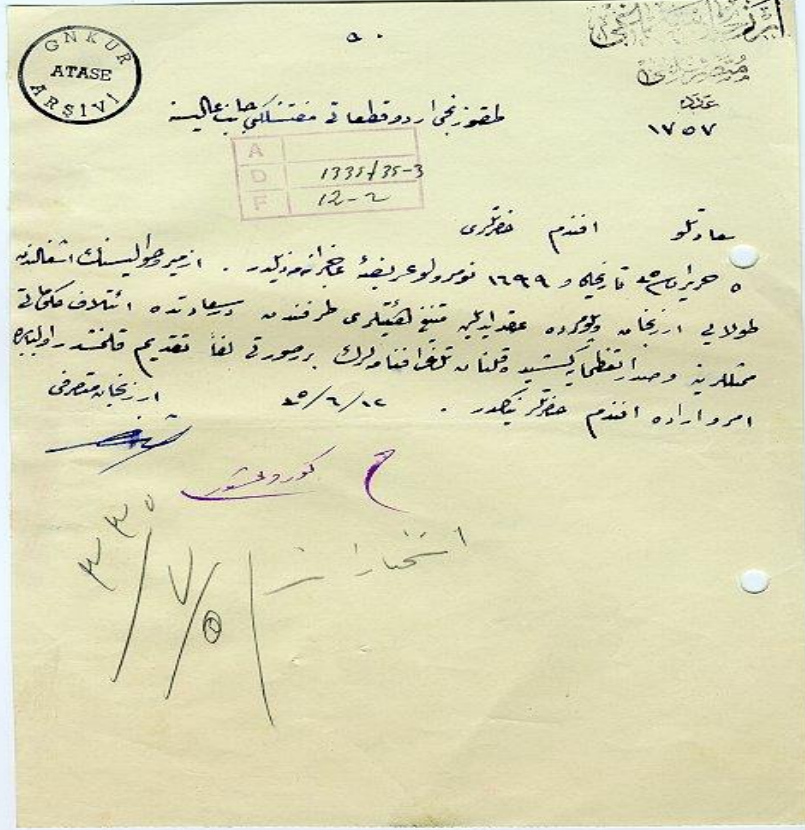 GNKUR
ATASE
ARŞİVİ
متصرفلغى
عدد
١٧٥٧
طقوزنجى اردو قطعاتى مفتشلكى جانب عاليسنه
A
D 1335/35-3
F 12-2
سعادتلو افندم حضرتلرى
٥ حزيران ٣٥ تاريخلى و ١٦٩٩ نومرولو عريضهٔ عاجزانه مه ذيلدر . ازمير و حواليسنك اشغالندن
طولايى ارزنجان و عقد ايديلن متينغ هيئتلرى طرفندن درسعادتده ائتلاف حكوماتى
ممثللرينه و صدارتعظمايه كشيده قلنان تلغرافنامه لرك بر صورتى لفاً تقديم قلنمشدر اولبابده
امر و اراده افندم حضرتلرينكدر . ٣٥/٦/١٢ ارزنجان متصرفى
استخبارات